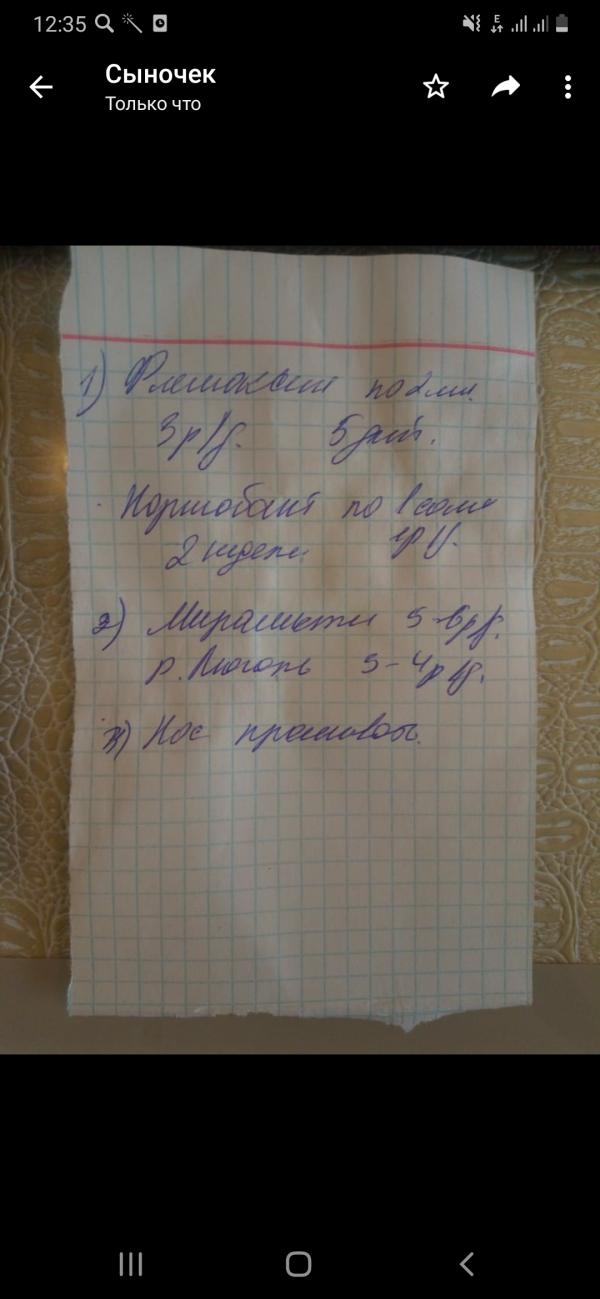 12:35
E
Сыночек
Только что
1) Флемоксин по 2 мл.
3 р/д. 5 дней.
Нормобакт по 1 саше
2 недели 1р/д.
2) Мирамистин 5-6 р/д.
р. Люголь 3-4 р/д.
3) Нос промывать.